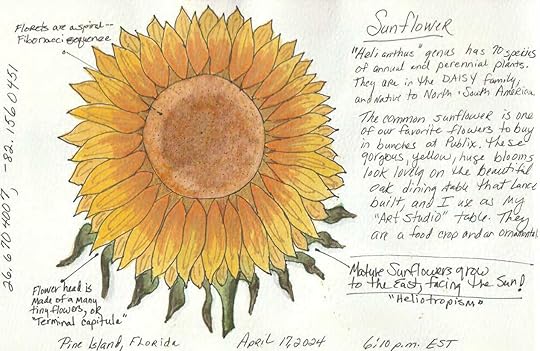 Sunflower
Florets are a spiral--
Fibonacci sequence
"Helianthus" genus has 70 species
of annual and perennial plants.
They are in the DAISY family,
and native to North + South America.
The common sunflower is one
of our favorite flowers to buy
in bunches at Publix. These
gorgous, yellow, huge blooms
look lovely on the beautiful
oak dining table that Lance
built, and I use as my
"Art Studio" table. They
are a food crop and an ornamental.
26.6704007, -82.1560451
Mature Sunflowers grow
to the East, facing the Sun!
"Heliotropism"
Flower head is
made of a many
tiny flowers, or
"Terminal capitula"
Pine Island, Florida
April 17, 2024
6:10 p.m. EST